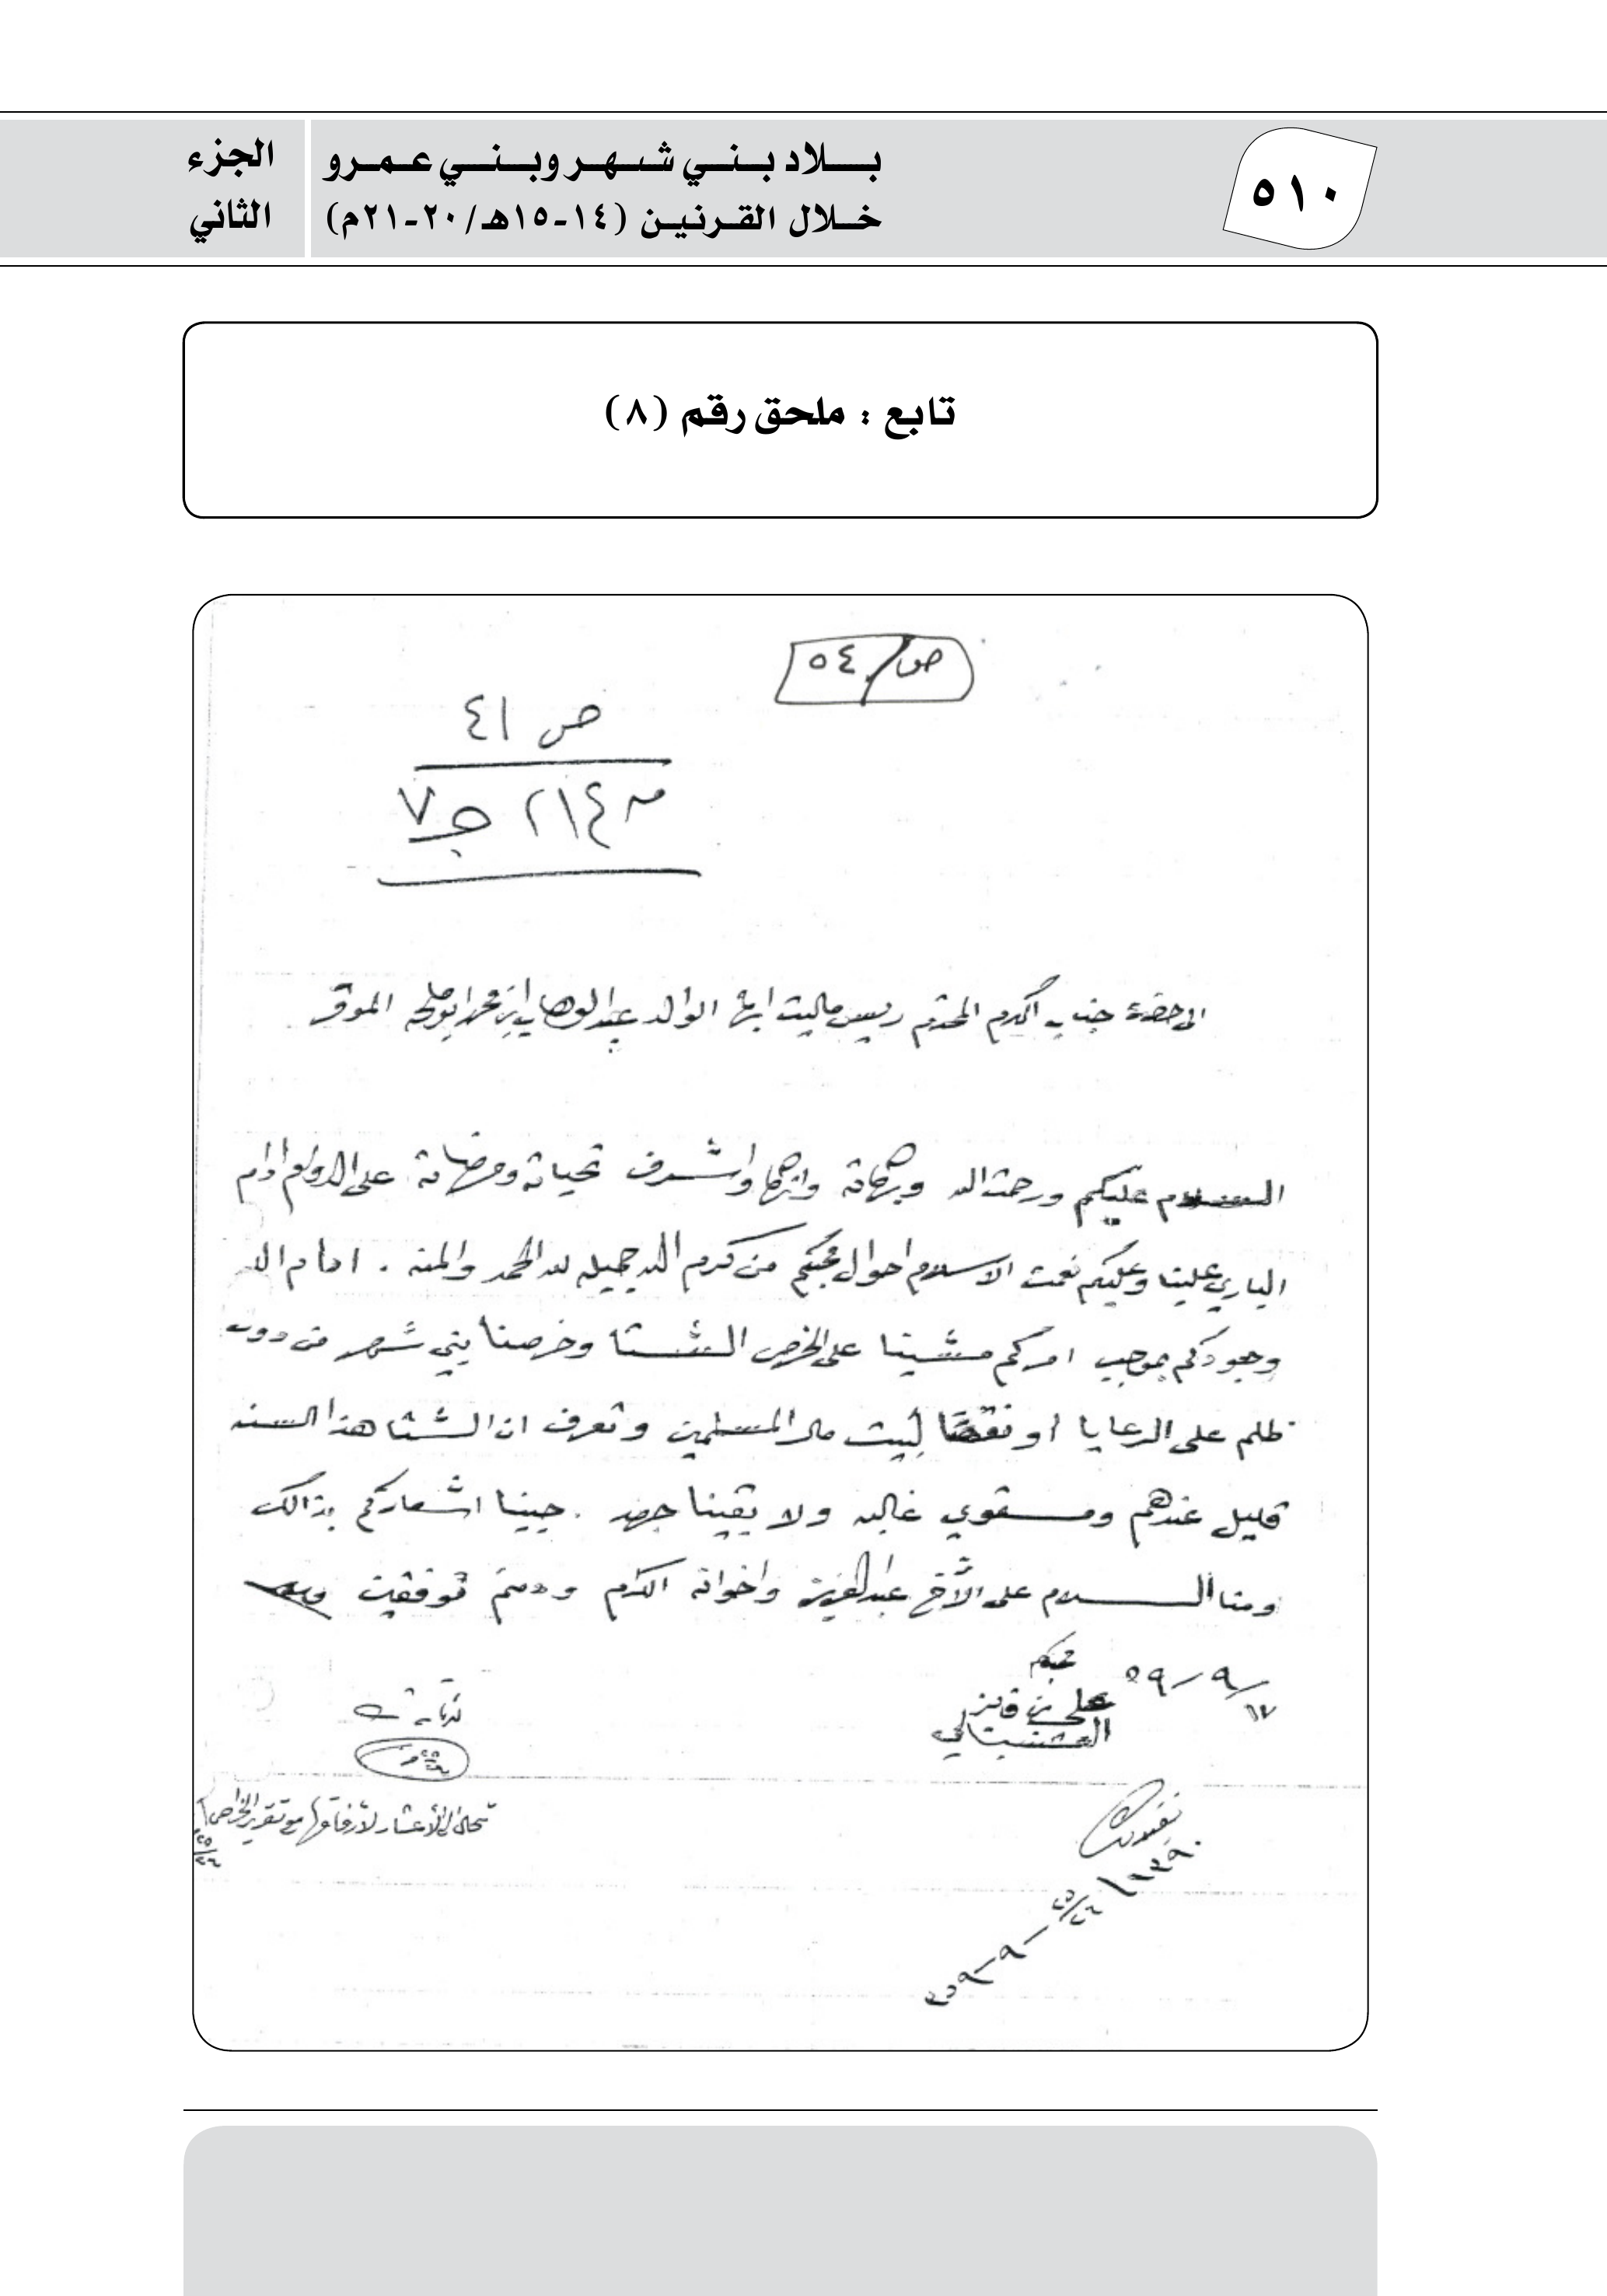 ٥١٠
بلاد بني شهر وبني عمرو
خلال القرنين (١٤-١٥هـ/٢٠-٢١م)
الجزء
الثاني
تابع : ملحق رقم (٨)
ص/٥٤
ص ٤١
٢١٤ ج٧
الى حضرة جناب اكرم المحترم ريس ماليت ابها الوالد عبدالوهاب ابن محمد ابوملحه الموقر
السلام عليكم ورحمت الله وبركاته وازكا واشرف تحياته ومرضاته على الدوام ادام
الباري علينا وعليكم نعمت الاسلام احوال محبكم من كرم الله جميله لله الحمد والمنه . ادام الله
وجودكم بموجب امركم مشينا على الخرص الشتا وخرصنا بني شهر من دون
ظلم على الرعايا او نقصًا لبيت مال المسلمين وتعرف ان الشتا هذا السنه
قليل عندهم ومسقوي غالبه ولا بقينا جهد . جبينا اشعاركم بذالك
ومنا السلام على الأخ عبدالعزيز واخوانه الكرام ودمتم توفقيت
١٧/٩-٥٩ محبكم
علي بن فايز
العسبلي
تحال الأعشار لأرفاقها مع تقرير الخراص
٢٦ - ٩ - ٣٥٩